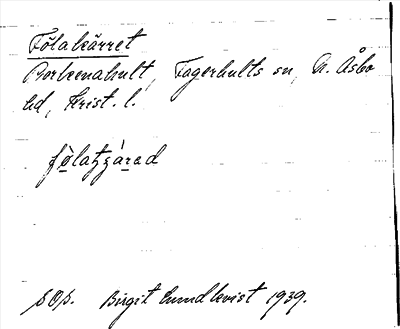 Fölakärret
Borkenahult, Fagerhults sn, N. Åsbo
hd, Krist. l.
fö̀latʒárad
sOp. Birgit Lundkvist 1939.